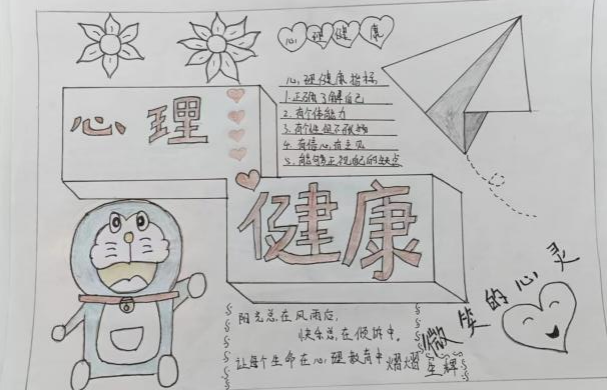 心理健康
心理健康指标
1.正确了解自己
2.有个体能力
3.有个性但不孤独
4.有信心,有主见
5.能够正视自己的缺点
心理
健康
阳光总在风雨后,
快乐总在倾诉中。
让每个生命在心理教育中熠熠
生辉
微笑的心灵